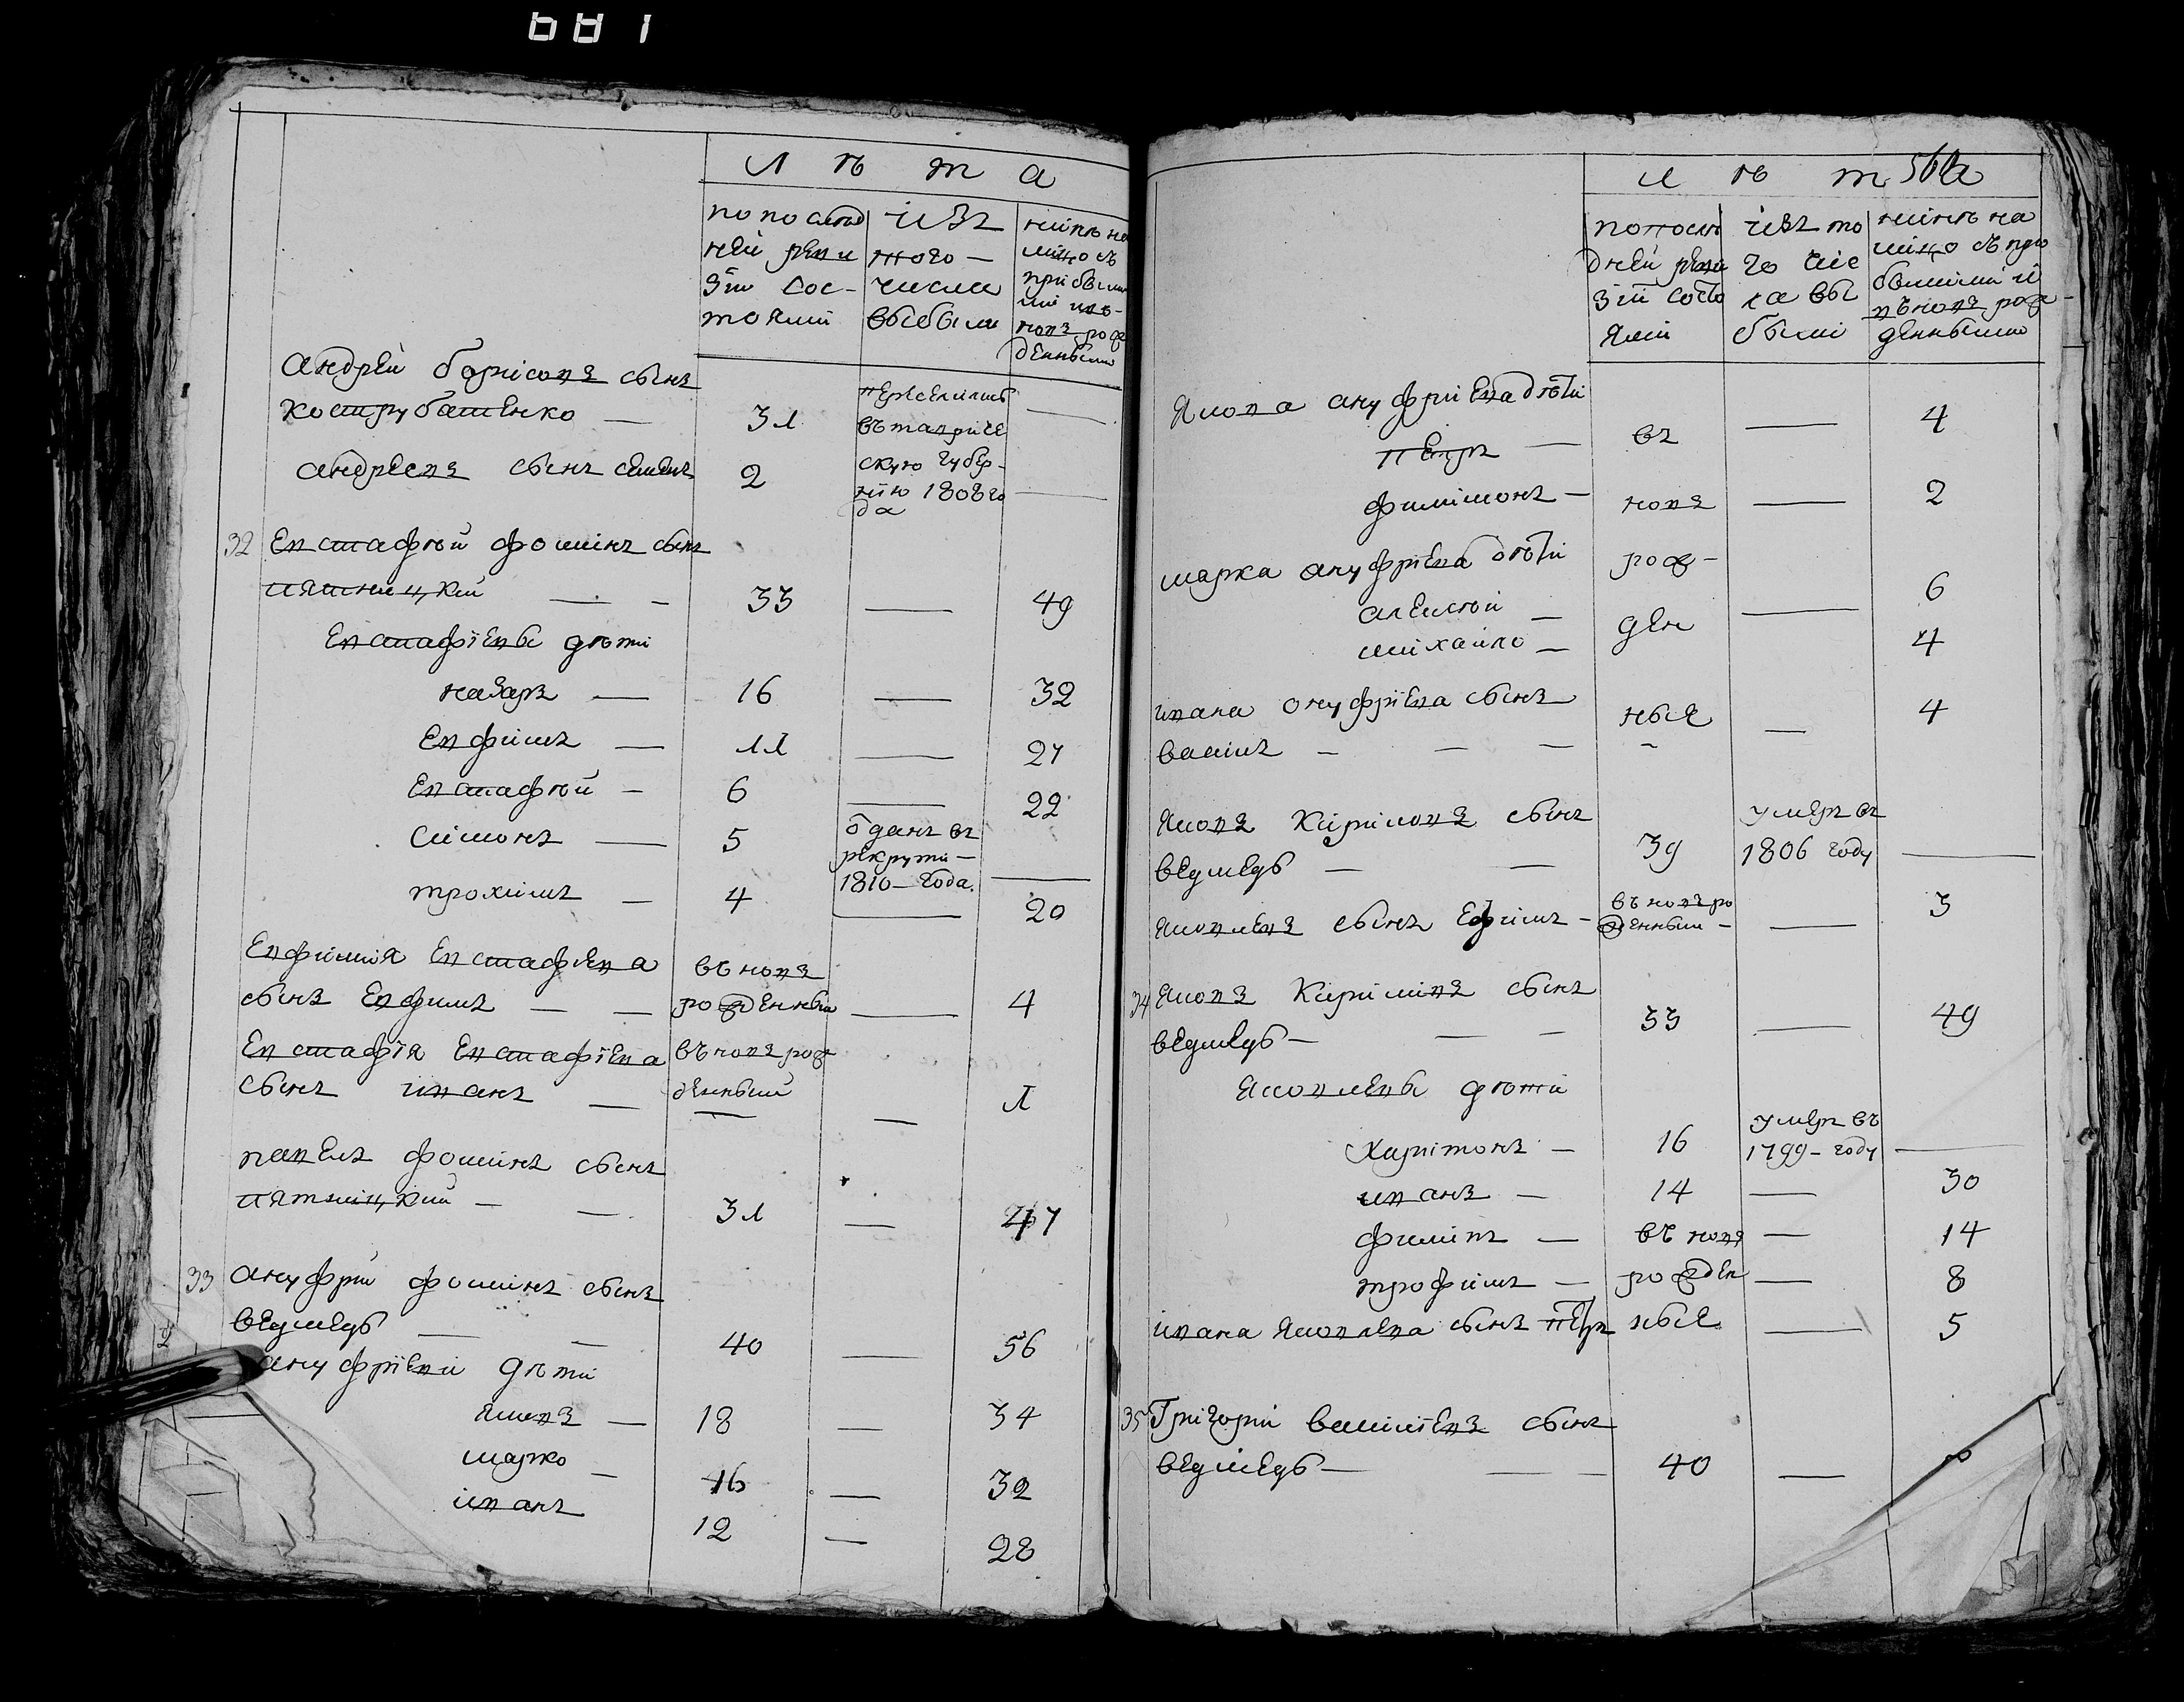 681
Л ѣ т а
по послѣд
ней реви
зіи сос-
тояли
изъ
того —
числа
выбыли
нынѣ на
лицо съ
прибылы
ми и въ-
новъ рож
денными
Андрей борисовъ сынъ
Кострубатенко — 31 переселились —
въ тавриче
Андреевъ сынъ семенъ 2 скую губер- —
нію 1808 го
да
32 Евстафѣй фоминъ сынъ
пятницкий — — 33 — 49
Евстафіевы дѣти
назаръ — 16 — 32
Евфимъ — 11 — 27
Евстафѣй — 6 — 22
симонъ — 5 отданъ въ
рекруты —
1810 — года. —
трохимъ — 4 — 20
Евфимия Евстафиева въ новъ
сынъ Евфимъ — — рожденный — 4
Евстафія Евстафіева въ новъ рож
сынъ иванъ — денный — 1
павелъ фоминъ сынъ
пятницкий — — 31 — 47
33 Ануфрий фоминъ сынъ
ведмедь — — 40 — 56
ануфріеви дѣти
яковъ — 18 — 34
марко — 16 — 32
иванъ 12 — 28
Л ѣ т 566 а
попослѣ
дней реви
зіи состо
яли
изъ то
го чис
ла вы
были
нынѣ на
лицо съ при
былыми и
въновъ рож-
денными
Якова ануфриева дѣти
петръ — въ — 4
филимонъ — новъ — 2
марка ануфріева дѣти рож-
алексѣй — — 6
михайло — ден 4
ивана онуфріева сынъ
василъ — — — ные — 4
Яковъ Кириловъ сынъ умеръ въ
ведмедь — — 39 1806 году —
Яковлевъ сынъ Ефимъ — въ новъ ро
жденный — — 3
34 Яковъ Кириловъ сынъ
ведмедь — — — 33 — 49
Яковлевы дѣти
умеръ въ
Харитонъ — 16 1799 — году —
иванъ — 14 — 30
филипъ — въ новъ — 14
трофимъ — рожден — 8
ивана Яковлева сынъ петръ ные — 5
35 Григорий василіевъ сынъ
ведмедь — — — 40 —